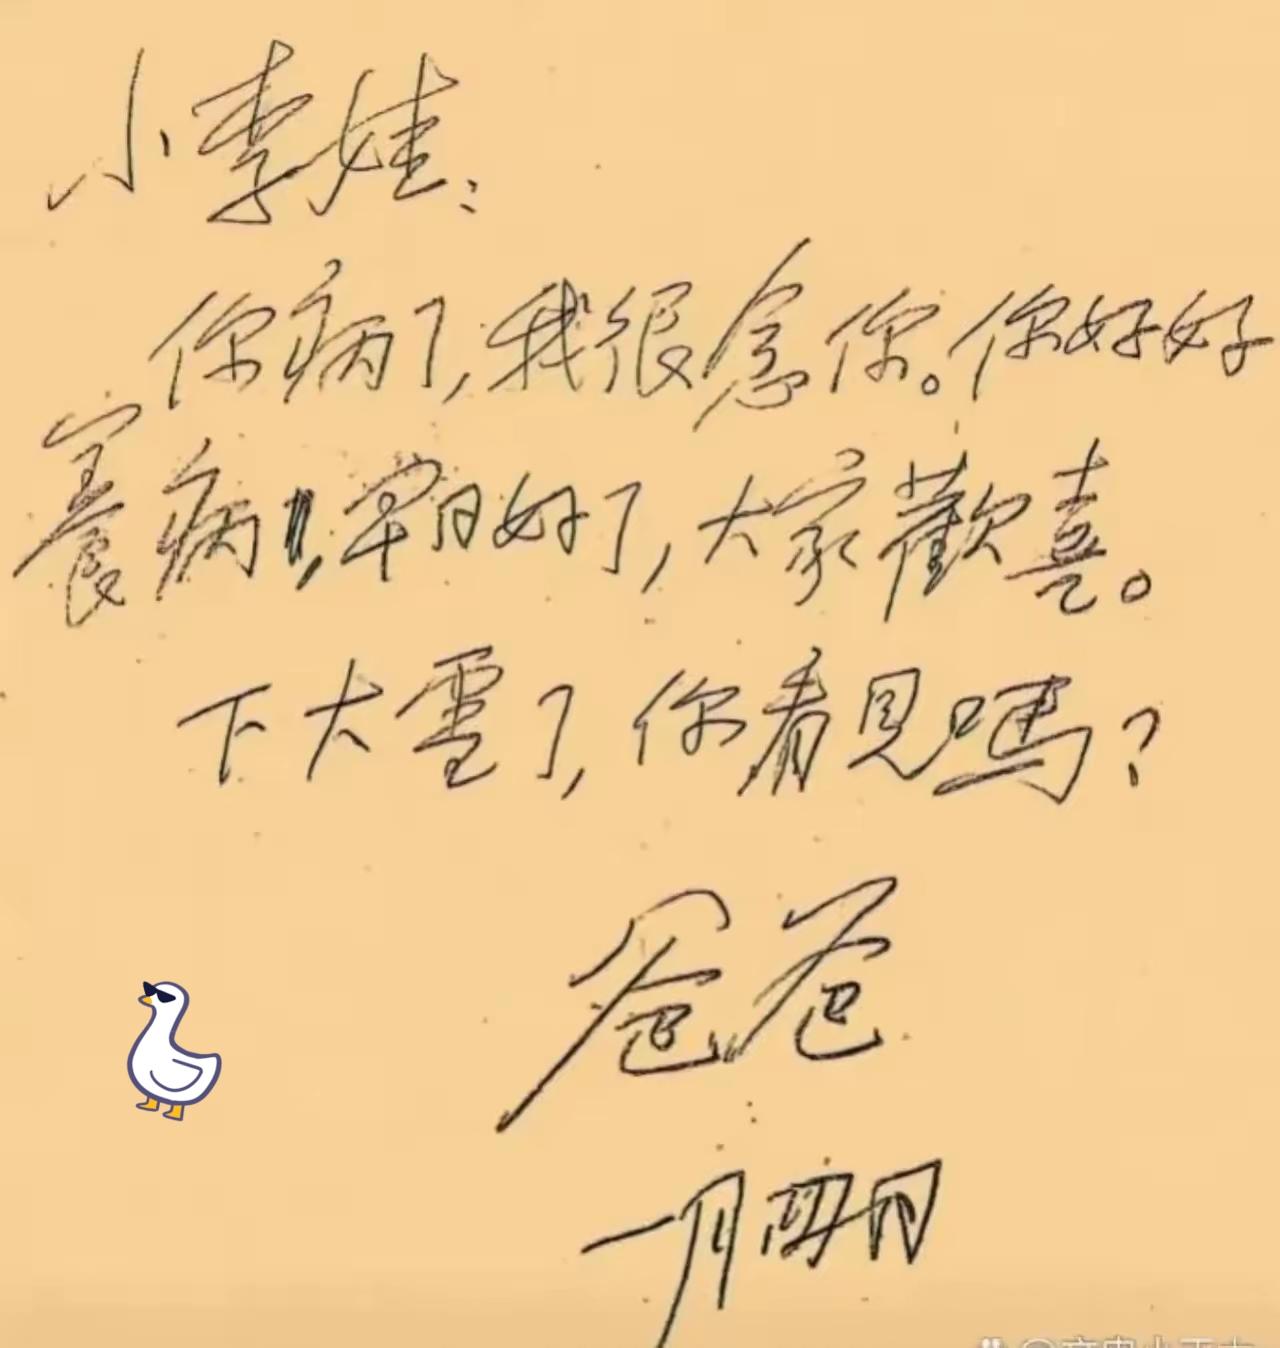 小李娃:
你病了,我很念你。你好好
養病,早日好了,大家歡喜。
下大雪了,你看見嗎?
爸爸
一月四日